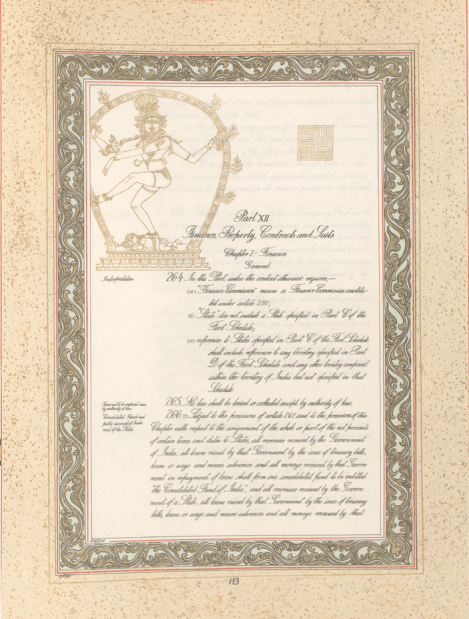 Part XII
Finance, Property, Contracts and Suits
Chapter I - Finance
General
Interpretation.
264. In this Part, unless the context otherwise requires,—
(a) "Finance Commission" means a Finance Commission constitu-
ted under article 280;
(b) "State" does not include a State specified in Part C of the
First Schedule;
(c) references to States specified in Part C of the First Schedule
shall include references to any territory specified in Part
D of the First Schedule and any other territory comprised
within the territory of India but not specified in that
Schedule.
Taxes not to be imposed save
by authority of law.
265. No tax shall be levied or collected except by authority of law.
Consolidated Funds and
public accounts of India
and of the States.
266. (1) Subject to the provisions of article 267 and to the provisions of this
Chapter with respect to the assignment of the whole or part of the net proceeds
of certain taxes and duties to States, all revenues received by the Government
of India, all loans raised by that Government by the issue of treasury bills,
loans or ways and means advances and all moneys received by that Govern-
ment in repayment of loans shall form one consolidated fund to be entitled
"the Consolidated Fund of India", and all revenues received by the Govern-
ment of a State, all loans raised by that Government by the issue of treasury
bills, loans or ways and means advances and all moneys received by that
113